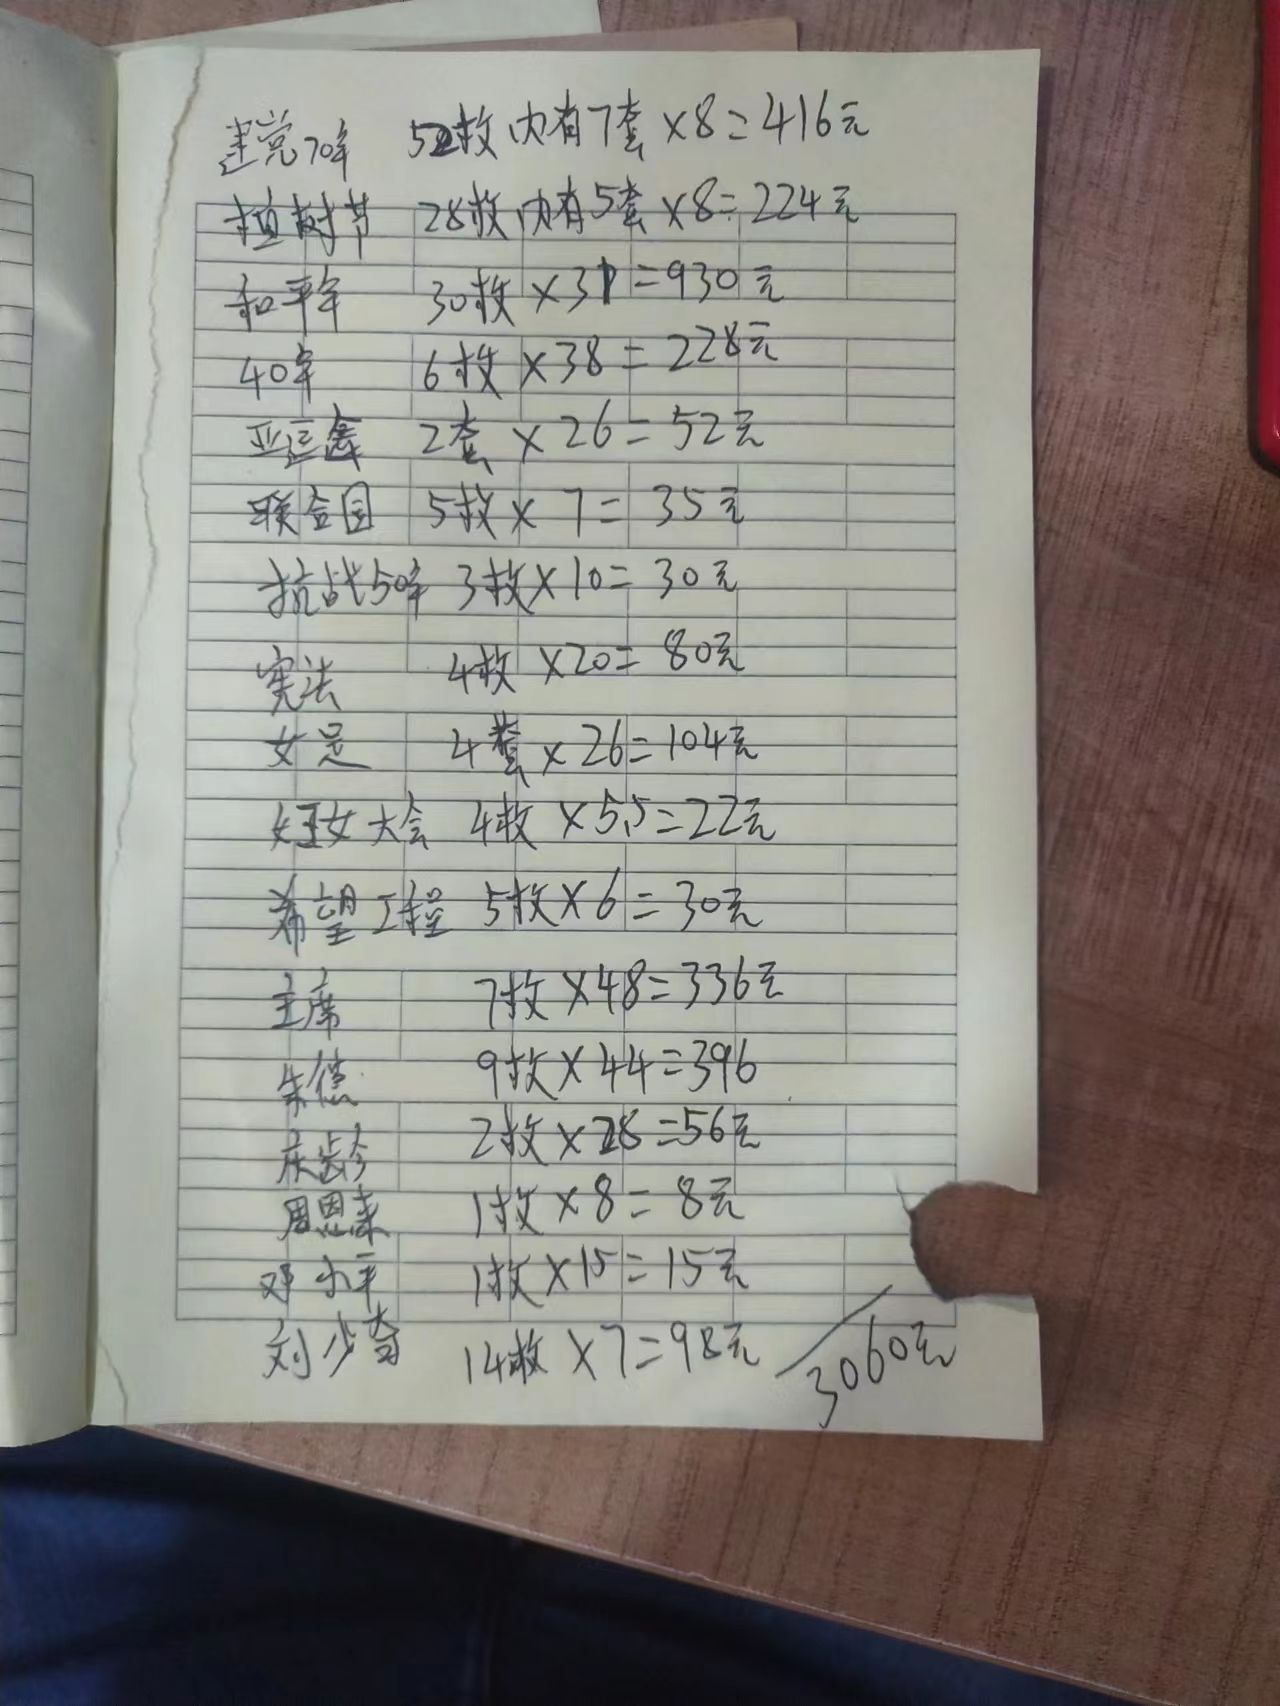 建党70年 52枚内有7套×8=416元
植树节 28枚内有5套×8=224元
和平年 30枚×31=930元
40年 6枚×38=228元
亚运会 2套×26=52元
联合国 5枚×7=35元
抗战50年 3枚×10=30元
宪法 4枚×20=80元
女足 4套×26=104元
妇女大会 4枚×5.5=22元
希望工程 5枚×6=30元
主席 7枚×48=336元
朱德 9枚×44=396
庆龄 2枚×28=56元
周恩来 1枚×8=8元
邓小平 1枚×15=15元
刘少奇 14枚×7=98元
3060元